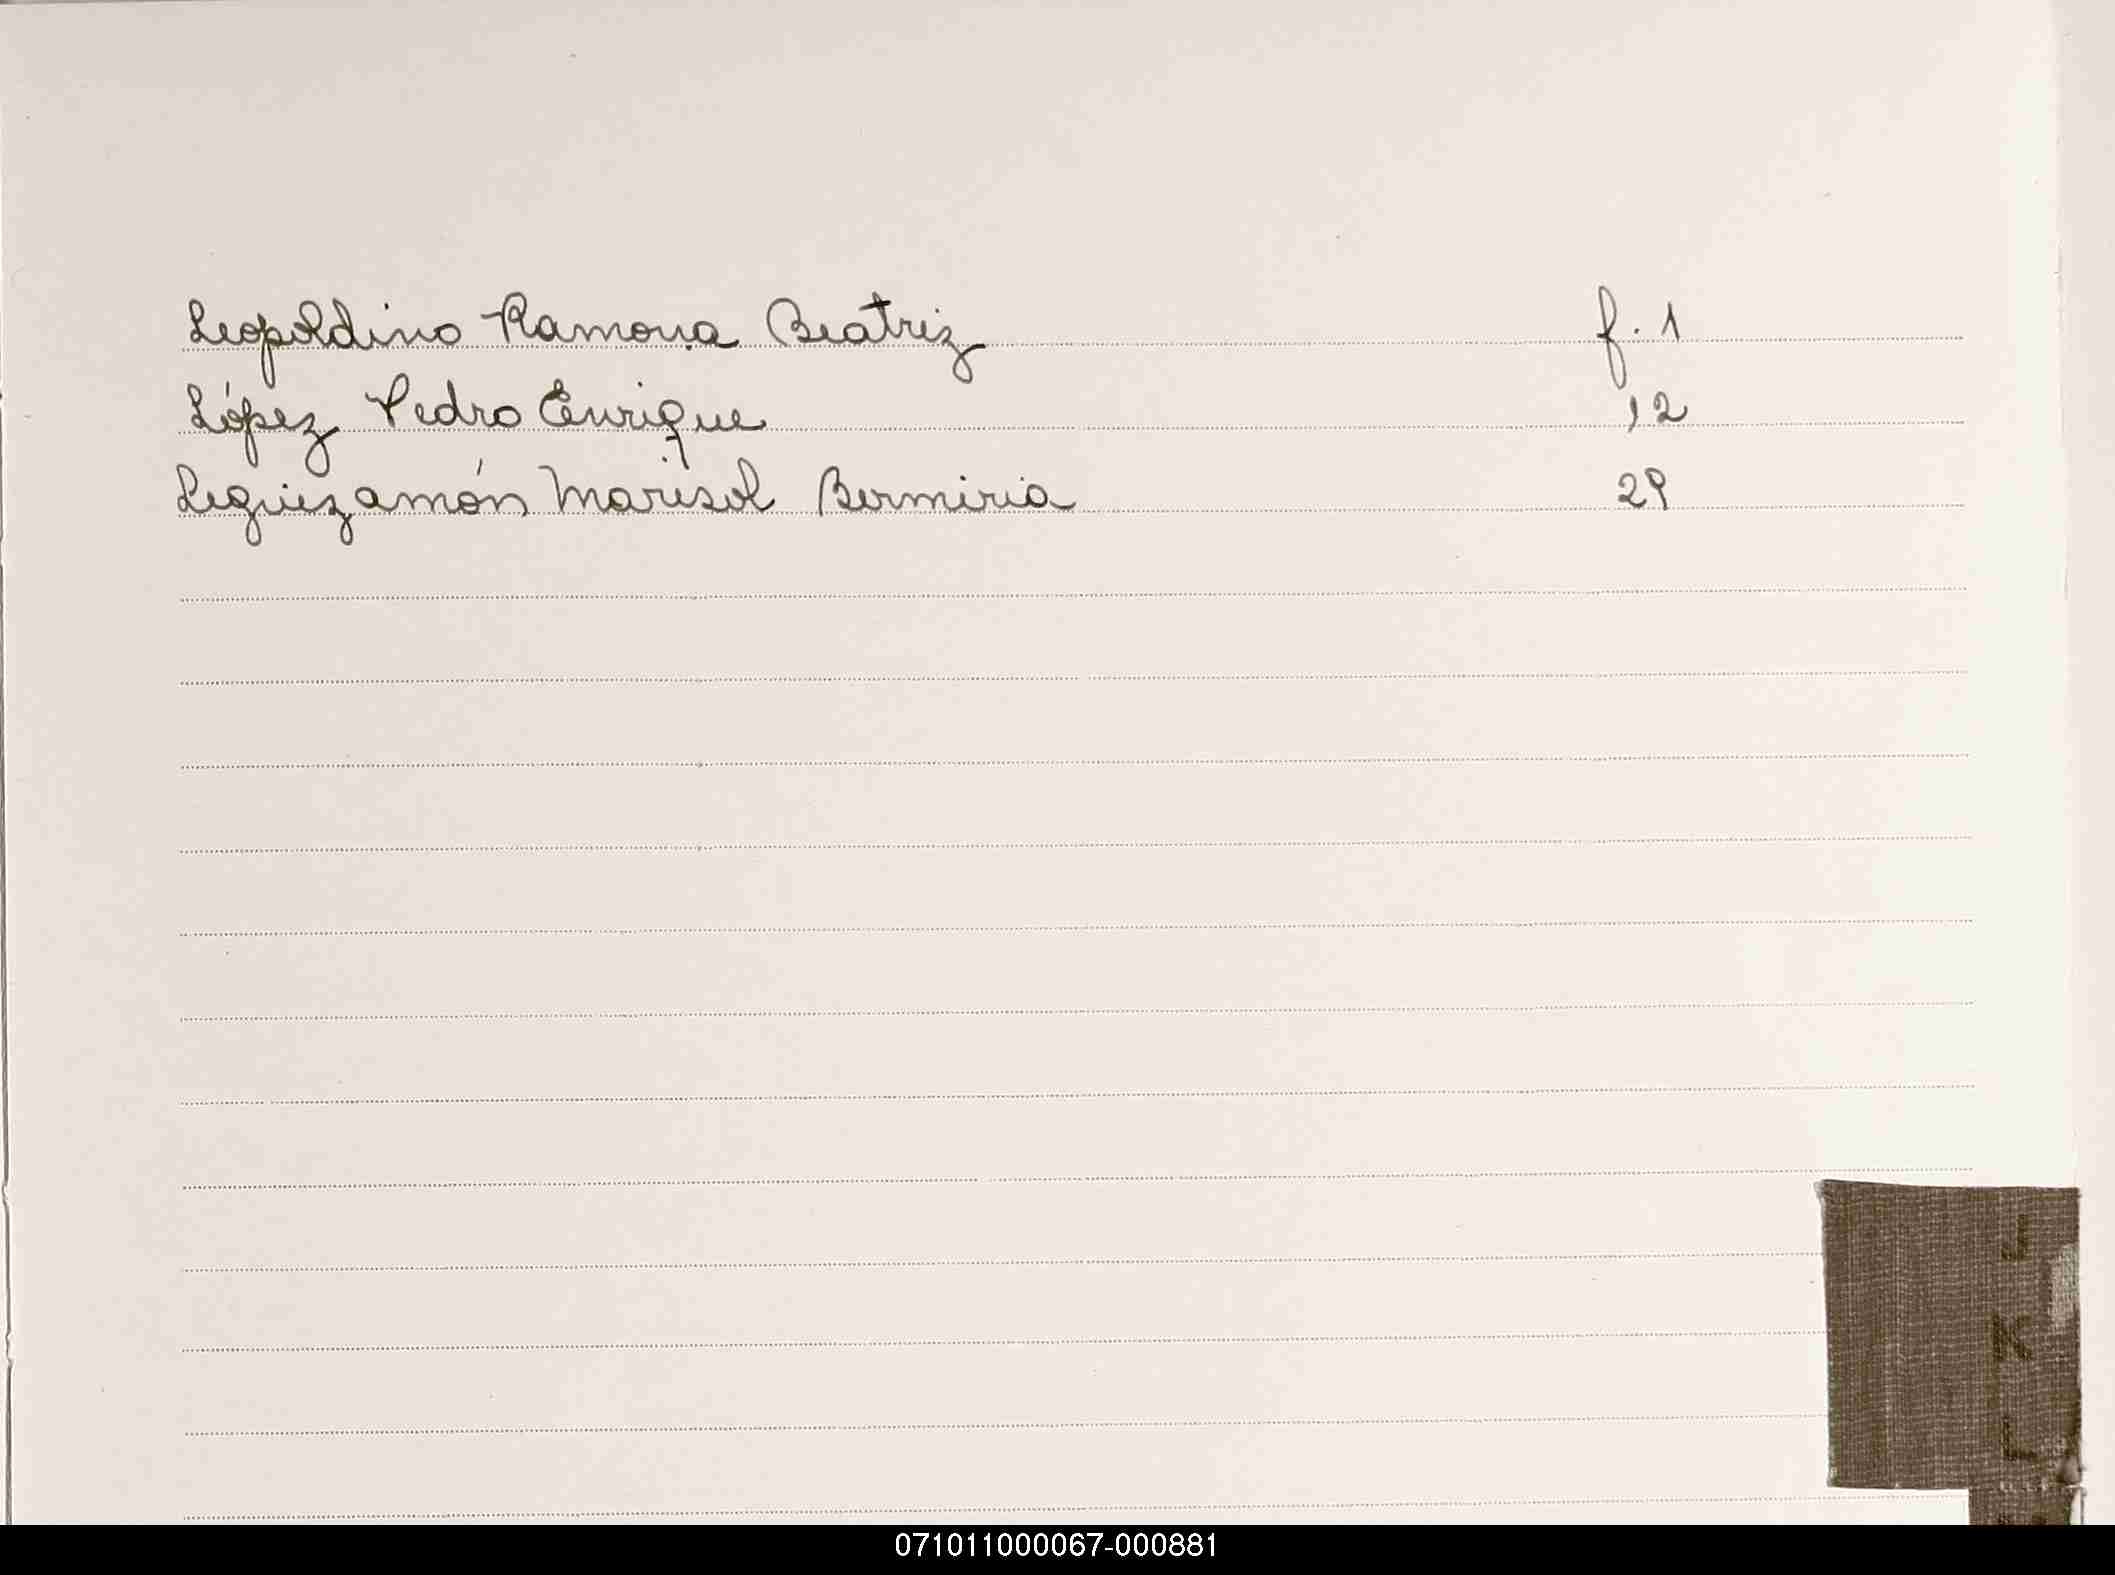 Leopoldino Ramona Beatriz f. 1
López Pedro Enrique 12
Leguizamón Marisol Bermiria 29
J
K
L
071011000067-000881